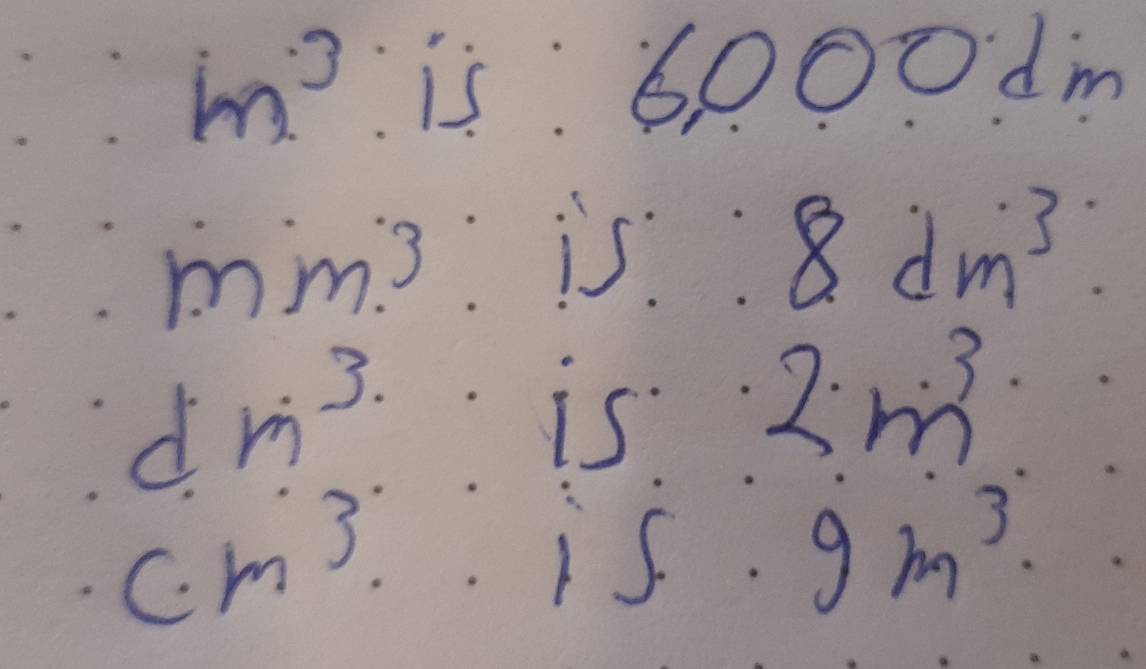 m³ is 6,000 dm
mm³ is 8 dm³
dm³ is 2 m³
cm³ is 9 m³